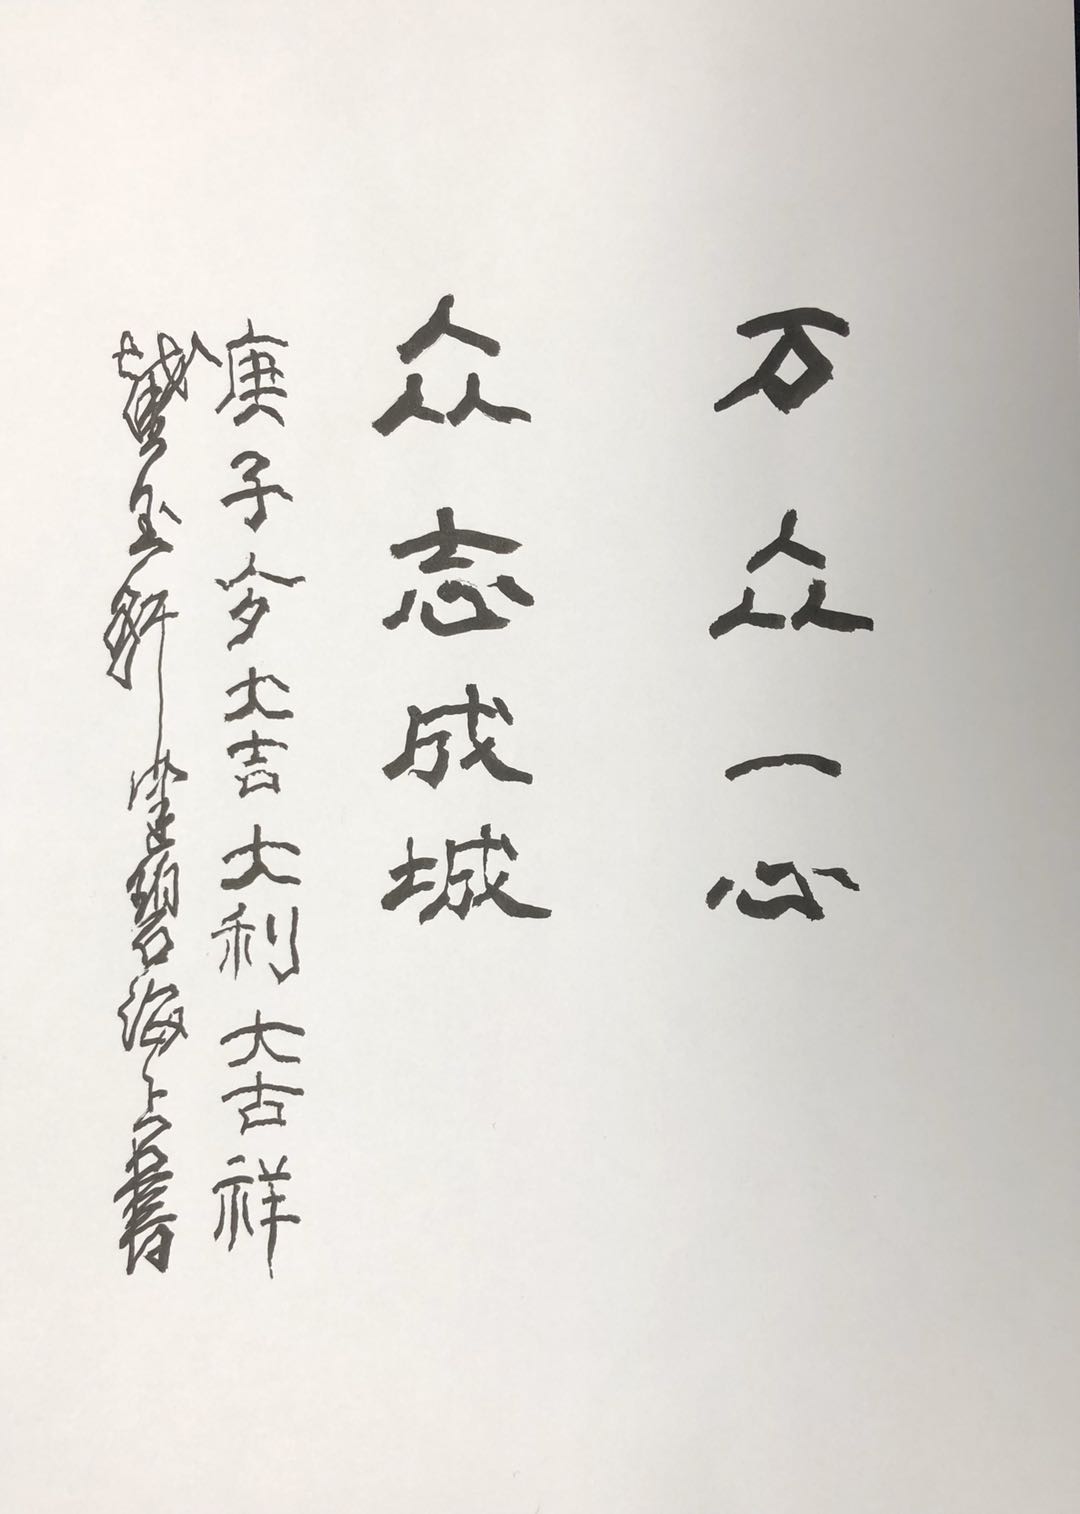 万众一心
众志成城
庚子年大吉大利大吉祥
碧海上书